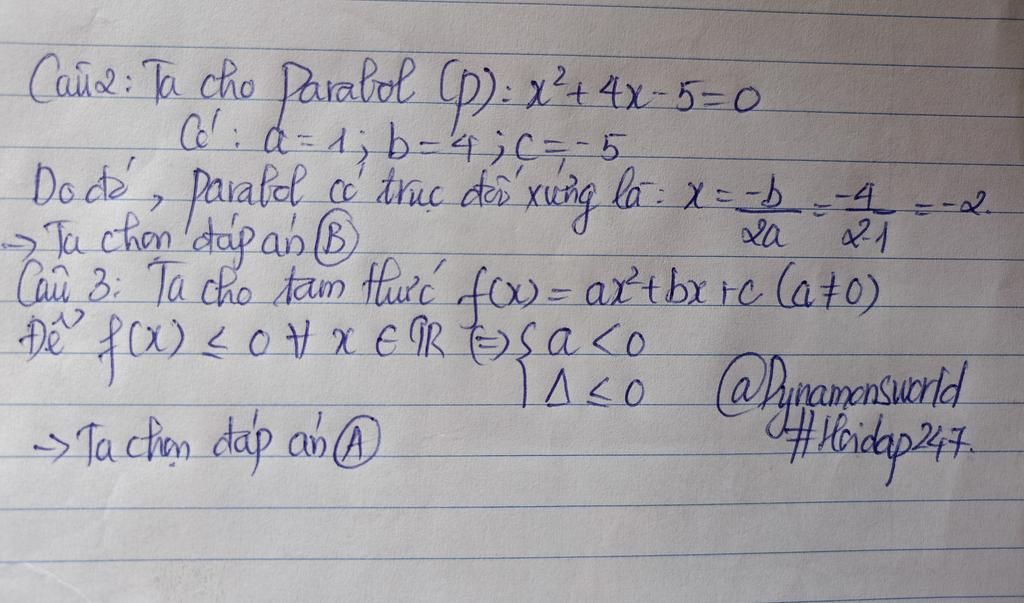 Câu 2: Ta cho parabol (p): x² + 4x - 5 = 0
Có: a = 1; b = 4; c = -5
Do đó, parabol có trục đối xứng là: x = -b/2a = -4/2·1 = -2.
→ Ta chọn đáp án Ⓑ
Câu 3: Ta cho tam thức f(x) = ax² + bx + c (a ≠ 0)
Để f(x) ≤ 0 ∀ x ∈ ℝ ⇔ { a < 0
Δ ≤ 0
@Dynamonsworld
→ Ta chọn đáp án Ⓐ
#Hoidap247.